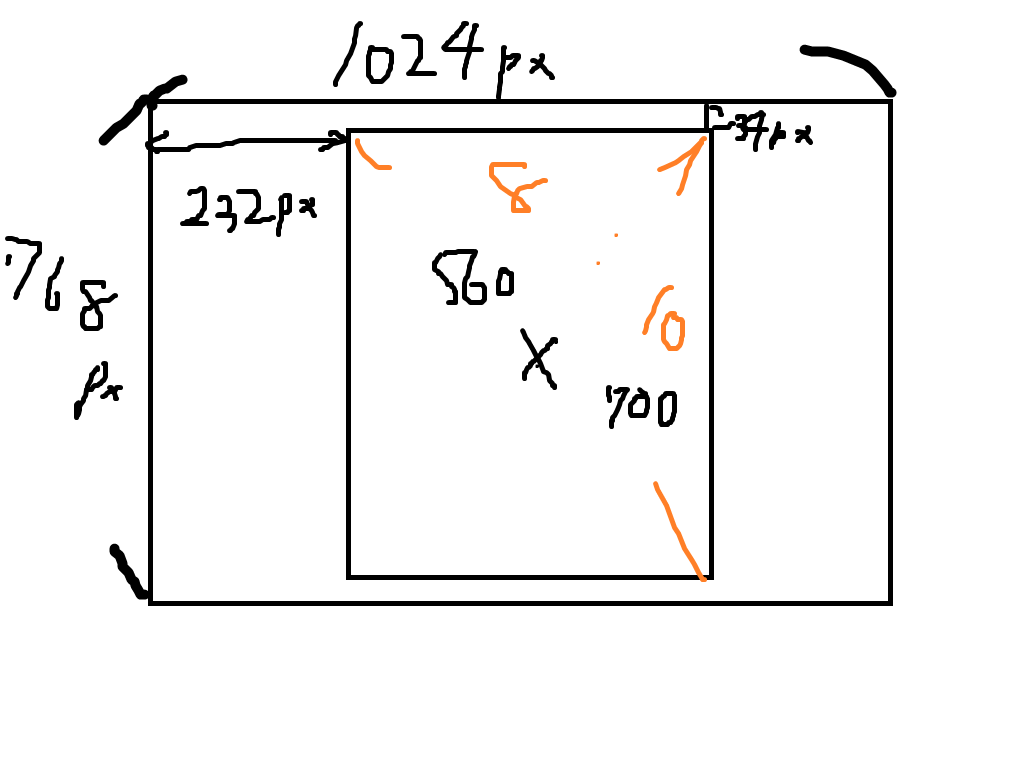 1024px
34px
8
232px
768
px
560
X
700
10